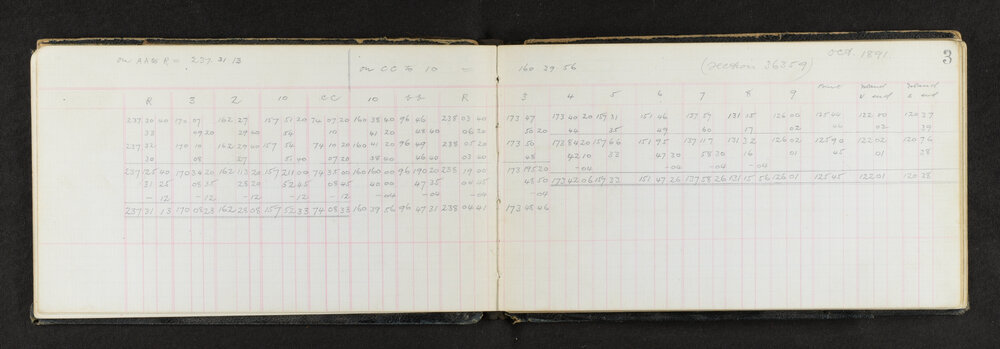 on AABS R = 237. 31 13
on CC to 10 = 160 39 56
(Section 36359) Oct 1891. 3
R 3 2 10 CC 10 R 3 4 5 6 7 8 9 Point Island
237 30 40 170 07 162 27 157 51 20 74 07 20 160 38 40 96 46 238 03 40 173 47 173 40 20 157 31 151 46 137 57 131 15 126 00 125 44 122 00 120 37
33 09 20 29 40 54 10 41 20 48 40 06 20 50 20 44 35 49 60 17 02 46 02 39
237 32 170 10 162 29 40 157 54 74 10 20 160 41 20 96 49 238 05 20 173 50 157 66 151 131 32 126 02 122 02
30 08 27 51 40 07 20 38 40 46 40 03 40 48 42 10 33 47 30 58 30 16 01 45 01 38
-04 -04 -04
237 125 40 170 34 20 162 113 20 157 211 00 74 35 00 160 160 00 96 190 20 238 19 00 173 195 20
31 25 08 35 28 20 52 45 08 45 40 00 47 35 04 45 48 50 173 42 06 157 33 151 47 26 137 58 26 131 15 56 126 01 125 45 122 01 120 38
-12 -12 -12 -12 -12 -04 -04 -04 -04
237 31 13 170 08 23 162 28 08 157 52 33 74 08 33 160 39 56 96 47 31 238 04 41 173 48 46